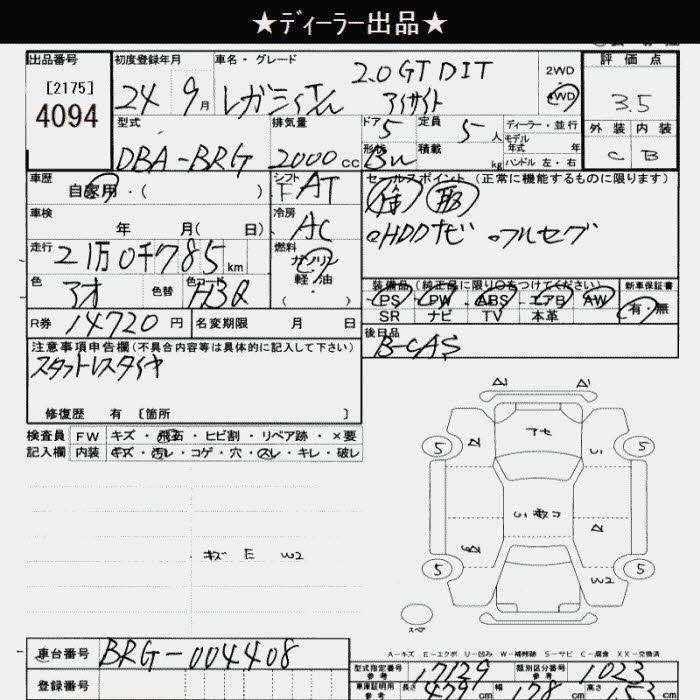 ★ディーラー出品★
出品番号 初度登録年月 車名・グレード 評価点
[2175]
4094
24 9月 2.0 GT DIT
アイサイト
2WD
4WD
3.5
型式 排気量 ドア 定員 ディーラー・並行 外装 内装
DBA-BRG 2000cc 5 5人 モデル年式 年 C B
形状 積載 kg ハンドル 左・右
車歴 シフト セールスポイント (正常に機能するものに限ります)
自家用・( ) F AT
車検 冷房 HDDナビ フルセグ
年 月( 日) AC
走行 燃料
21万0千785km ガソリン
軽・油
( ・ )
色 色替 色コード 装備品 (純正品に限り○をつけてください) 新車保証書
アオ H3Q PS PW ABS エアB AW 有・無
R券 14720円 名変期限 月 日 SR ナビ TV 本革
注意事項申告欄(不具合内容等は具体的に記入して下さい) 後日品
スタットレスタイヤ B-CAS
修復歴 有 〔箇所 〕
検査員 FW キズ・飛石・ヒビ割・リペア跡・×要
記入欄 内装 キズ・汚レ・コゲ・穴・スレ・キレ・破レ
A1 A1
5 5
キズ E W2
5 5
W2
スペア
A-キズ E-エクボ U-凹み W-補修跡 S-サビ C-腐食 XX-交換済
車台番号 BRG-004408 型式指定番号 参考 17129 類別区分番号 参考 1023
登録番号 車庫証明用 参考 長さ 479cm 幅 178cm 高さ 153cm